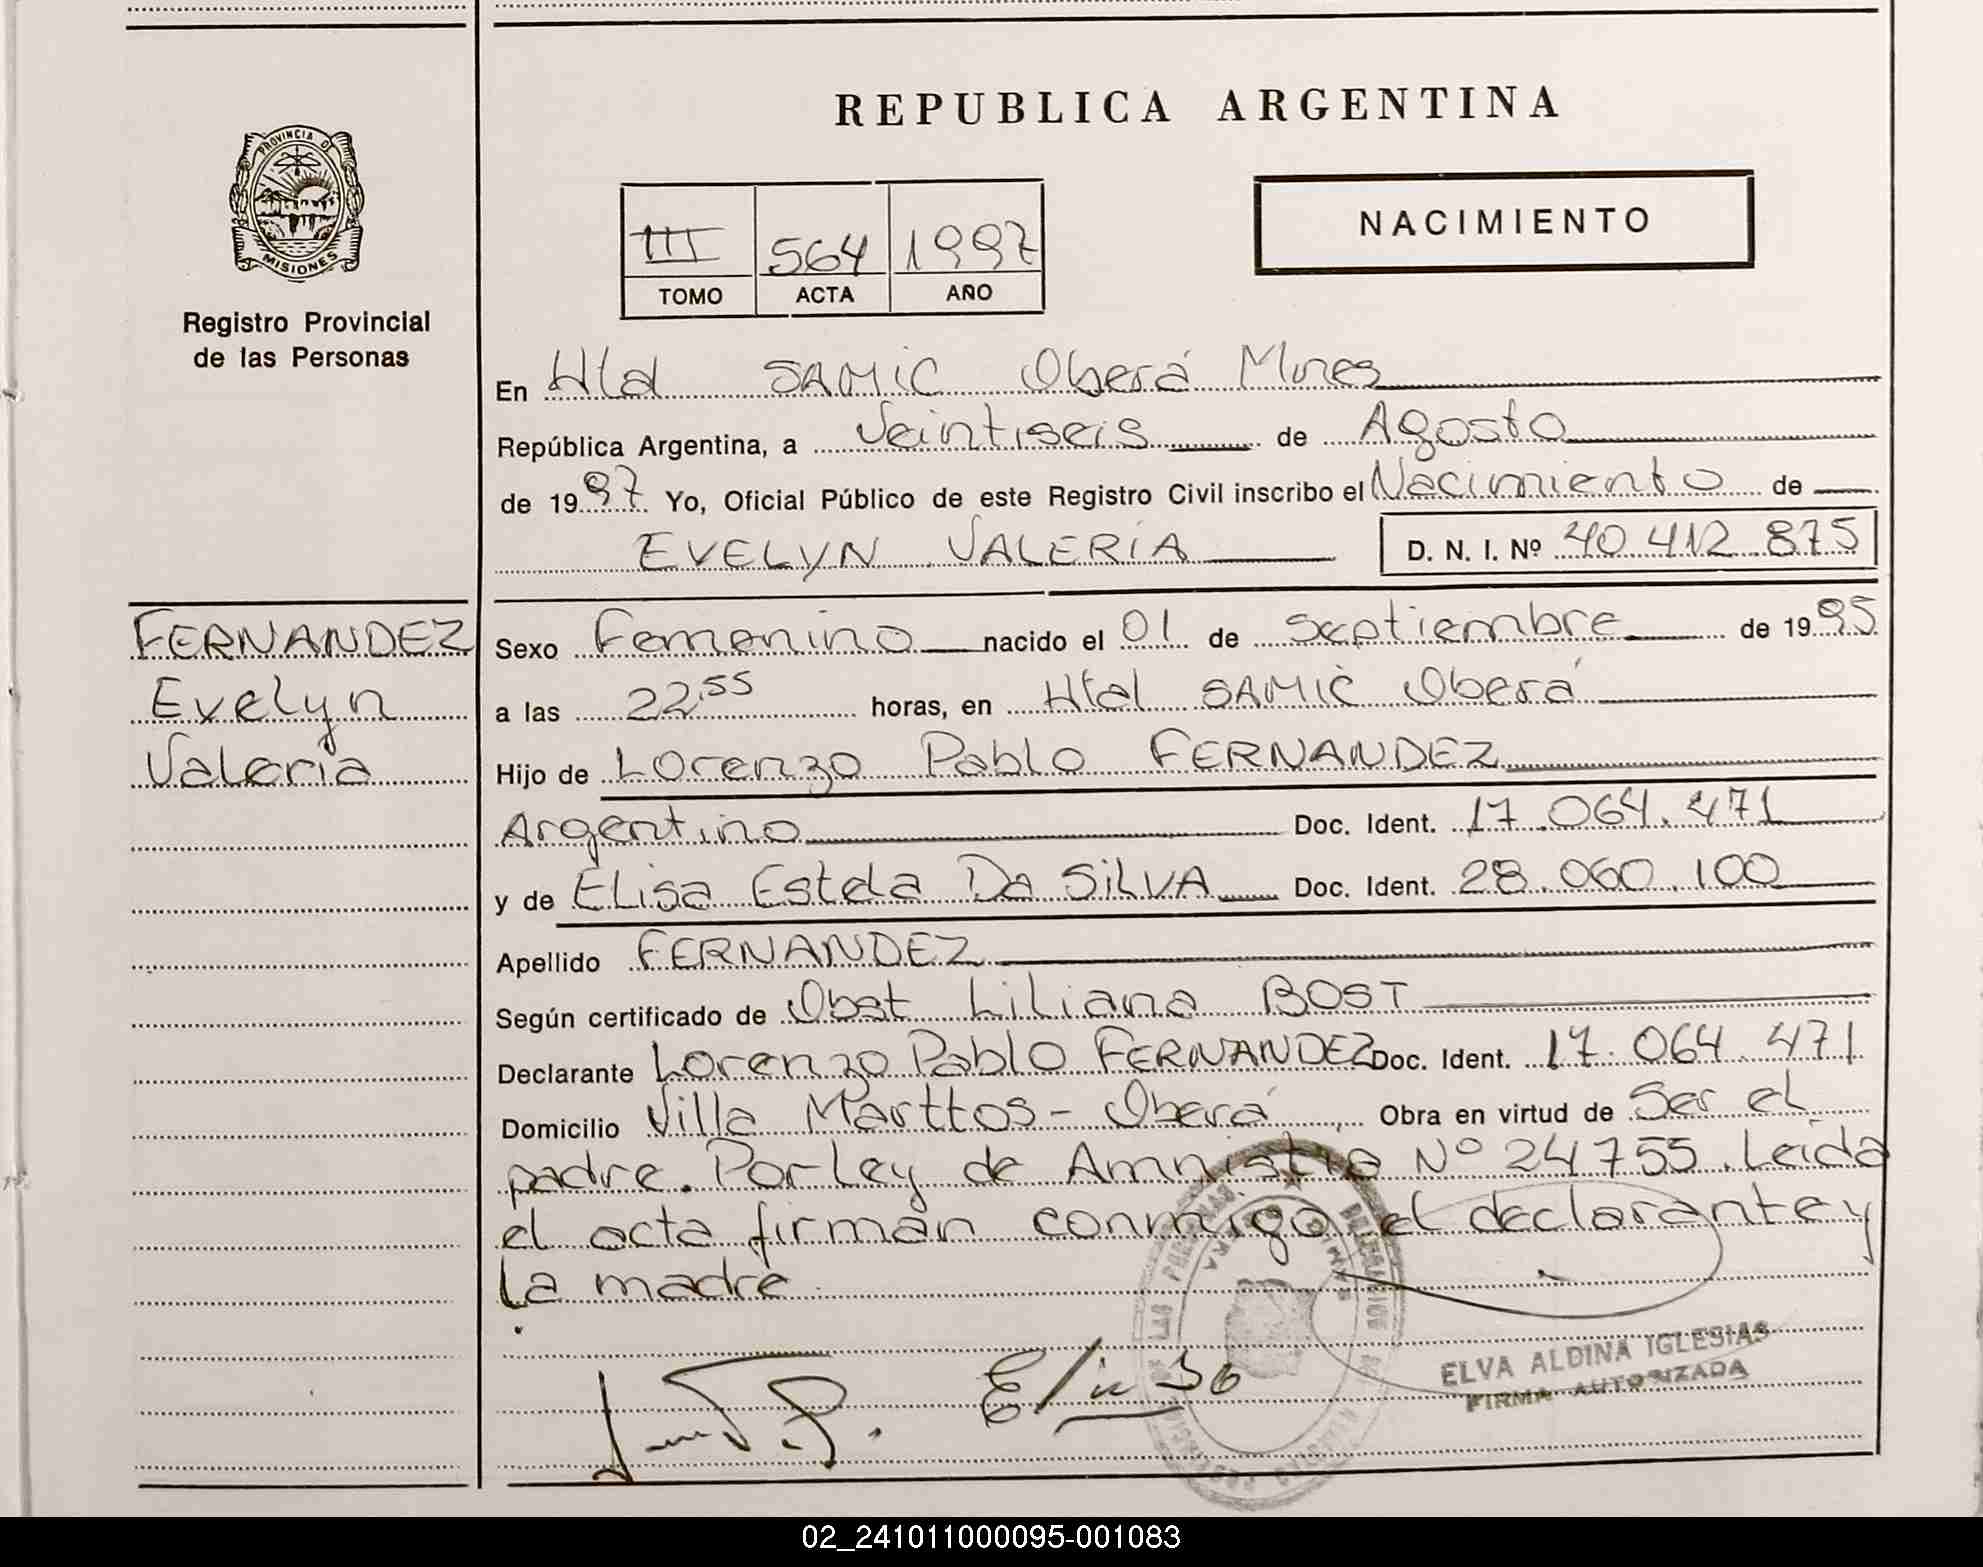 REPUBLICA ARGENTINA
PROVINCIA DE
MISIONES
Registro Provincial
de las Personas
III 564 1997
TOMO ACTA AÑO
NACIMIENTO
En Htal SAMIC Oberá Mnes
República Argentina, a Veintiseis de Agosto
de 1997 Yo, Oficial Público de este Registro Civil inscribo el Nacimiento de
EVELYN VALERIA D. N. I. Nº 40 412 875
FERNANDEZ
Evelyn
Valeria
Sexo Femenino nacido el 01 de Septiembre de 1995
a las 22,55 horas, en Htal SAMIC Oberá
Hijo de Lorenzo Pablo FERNANDEZ
Argentino Doc. Ident. 17.064.471
y de Elisa Estela Da SILVA Doc. Ident. 28.060.100
Apellido FERNANDEZ
Según certificado de Obst Liliana BOST
Declarante Lorenzo Pablo FERNANDEZ Doc. Ident. 17.064.471
Domicilio Villa Marttos - Oberá Obra en virtud de Ser el
padre. Por Ley de Amnistia Nº 24755. Leida
el acta firman conmigo el declarante y
la madre
ELVA ALDINA IGLESIAS
FIRMA AUTORIZADA
02_241011000095-001083